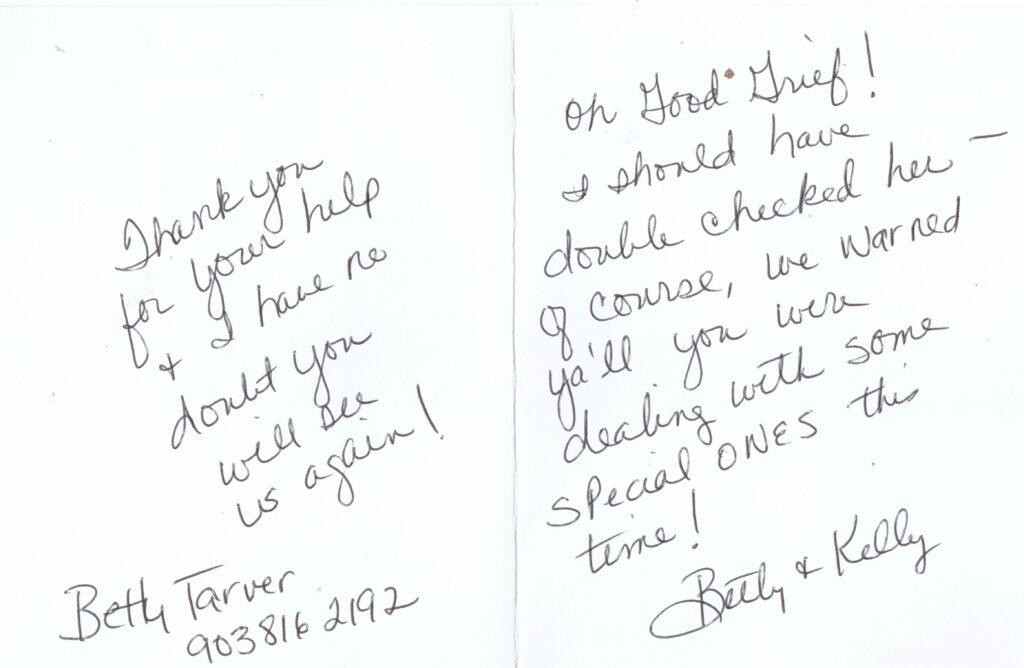 Thank you
for your help
+ I have no
doubt you
will see
us again!
Betty Tarver
903 816 2192
Oh Good Grief!
I should have
double checked her —
Of course, we warned
ya'll you were
dealing with some
special ONES this
time!
Betty + Kelly